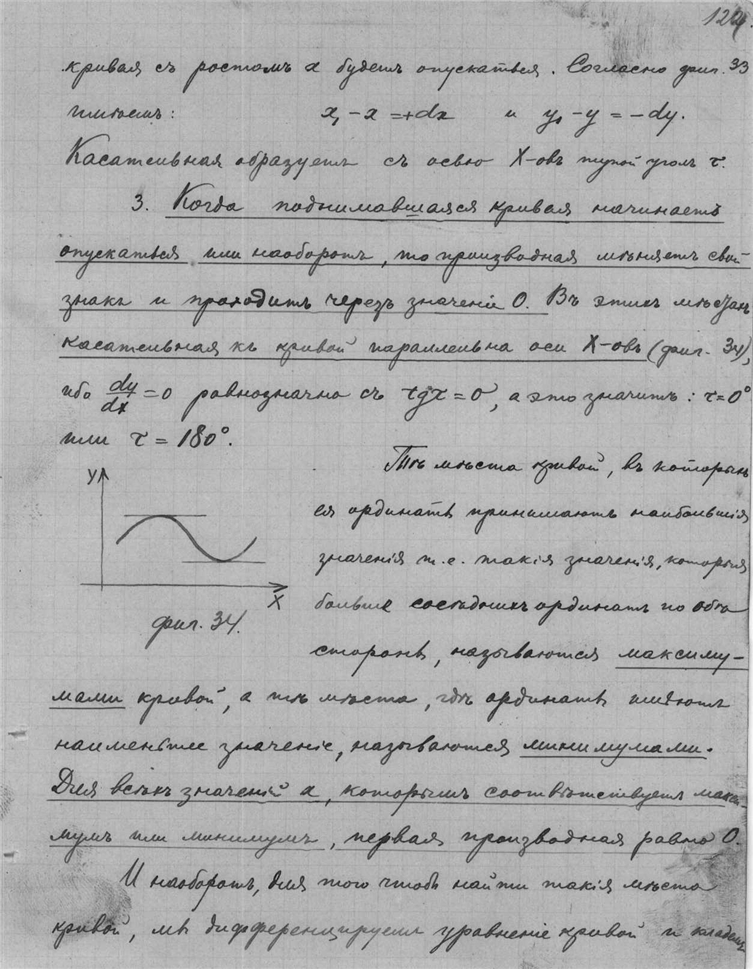 124.
кривая съ ростомъ x будетъ опускаться. Согласно фиг. 33
имѣемъ: x₁ - x = +dx и y₁ - y = - dy.
Касательная образуетъ съ осью X-овъ тупой уголъ τ.
3. Когда поднимавшаяся кривая начинаетъ
опускаться или наоборотъ, то производная мѣняетъ свой
знакъ и проходитъ черезъ значеніе 0. Въ этихъ мѣстахъ
касательная къ кривой параллельна оси X-овъ (фиг. 34),
ибо dy/dx = 0 равнозначно съ tgτ = 0, а это значитъ: τ = 0°
или τ = 180°.
Тѣ мѣста кривой, въ которыхъ
ея ординаты принимаютъ наибольшія
значенія т.е. такія значенія, которыя
больше сосѣднихъ ординатъ по обѣ
стороны, называются максиму-
мами кривой, а тѣ мѣста, гдѣ ординаты имѣютъ
наименьшее значеніе, называются минимумами.
Для всѣхъ значеній x, которымъ соотвѣтствуетъ макси-
мумъ или минимумъ, первая производная равна 0.
И наоборотъ, для того чтобы найти такія мѣста
кривой, мы дифференцируемъ уравненіе кривой и кладемъ
Y
X
фиг. 34.